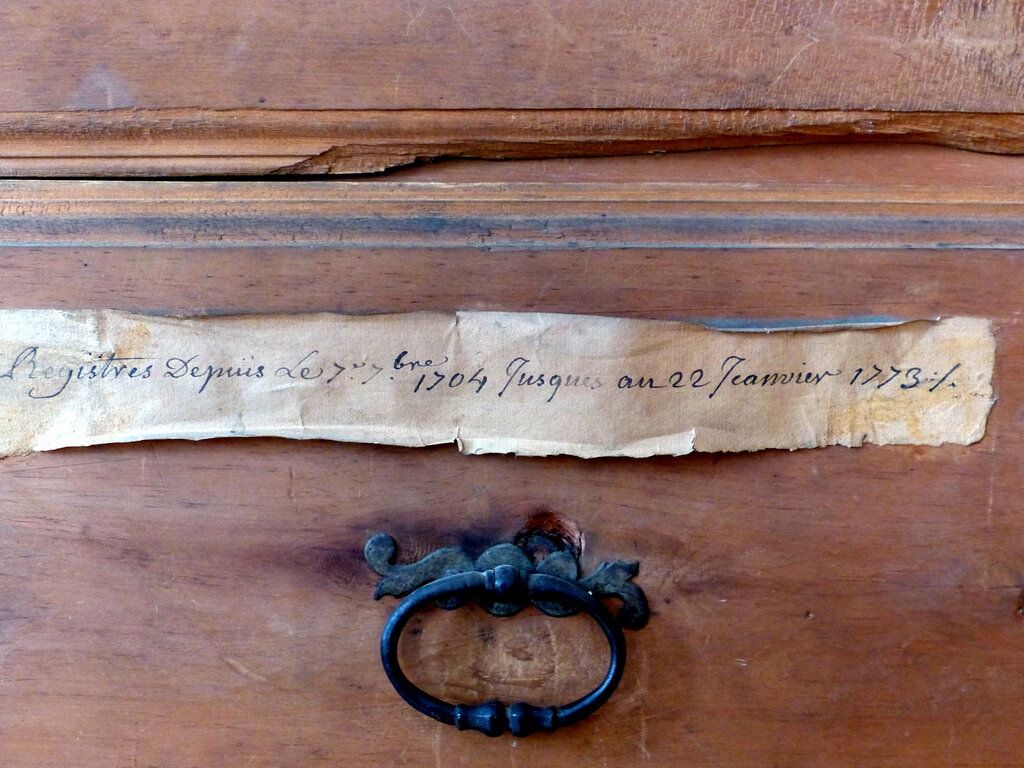 Registres Depuis Le 7.e 7.bre 1704 Jusques au 22 Jeanvier 1773 ./.